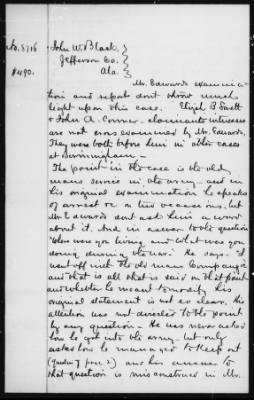 No. 5716
$490.
John W. Black,
Jefferson Co.
Ala.
Mr. Edwards examina-
tion and report don't throw much
light upon this case. Elijah B
& John A. Conner - claimants witnesses
are not cross examined by Mr. Edwards.
They were both before him in other cases
at Birmingham -
The point in the case is the old
mans service in the army - and in
his original examination he speaks
of arrest on a two occasions, but
Mr. Edwards dont ask him a word
about it. And in answer to the question
"Where was you living and what was you
doing during the war" he says - "I
went off with the old mans Company"
and that is all that is said on that point
and whether he meant to modify his
original statement is not so clear. His
attention was not directed to the point
by any question - He was never asked
how he got into the army - but only
asked how he managed to keep out
(question 7 page 2) and his answer to
that question is misconstrued in Mr.